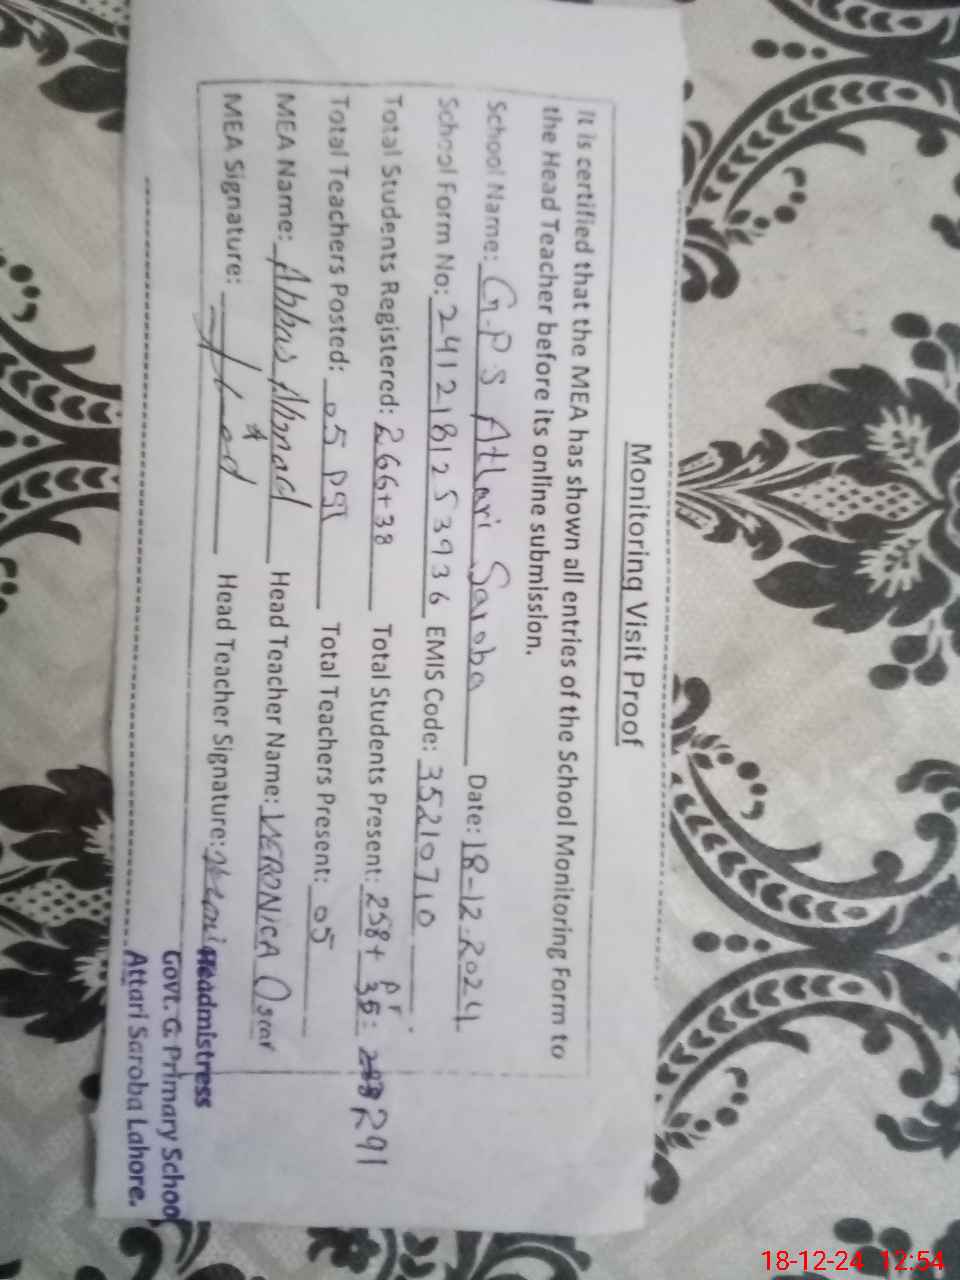 Monitoring Visit Proof
It is certified that the MEA has shown all entries of the School Monitoring Form to
the Head Teacher before its online submission.
School Name: G.P.S Attari Saroba Date: 18-12-2024
School Form No: 241218125 3936 EMIS Code: 35210710
Total Students Registered: 266+38 Total Students Present: 258+ 35: 291
Total Teachers Posted: 05 PST Total Teachers Present: 05
MEA Name: Abbas Ahmad Head Teacher Name: VERONICA Oscar
MEA Signature: Head Teacher Signature:
Headmistress
Govt. G. Primary School
Attari Saroba Lahore.
18-12-24 12:54